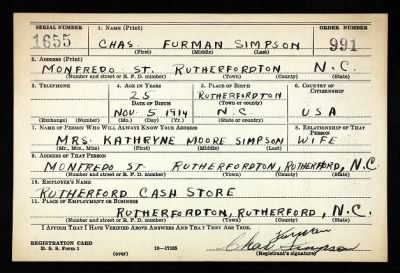 SERIAL NUMBER 1. NAME (Print) ORDER NUMBER
1655 CHAS. FURMAN SIMPSON 991
(First) (Middle) (Last)
2. ADDRESS (Print)
MONFREDO ST. RUTHERFORDTON N.C.
(Number and street or R. F. D. number) (Town) (County) (State)
3. TELEPHONE 4. AGE IN YEARS 5. PLACE OF BIRTH 6. COUNTRY OF CITIZENSHIP
25 RUTHERFORDTON
DATE OF BIRTH (Town or county)
NOV. 5 1914 N.C. USA
(Exchange) (Number) (Mo.) (Day) (Yr.) (State or country)
7. NAME OF PERSON WHO WILL ALWAYS KNOW YOUR ADDRESS 8. RELATIONSHIP OF THAT PERSON
MRS. KATHRYNE MOORE SIMPSON WIFE
(Mr., Mrs., Miss) (First) (Middle) (Last)
9. ADDRESS OF THAT PERSON
MONFREDO ST. RUTHERFORDTON, RUTHERFORD, N.C.
(Number and street or R. F. D. number) (Town) (County) (State)
10. EMPLOYER'S NAME
RUTHERFORD CASH STORE
11. PLACE OF EMPLOYMENT OR BUSINESS
RUTHERFORDTON, RUTHERFORD, N.C.
(Number and street or R. F. D. number) (Town) (County) (State)
I AFFIRM THAT I HAVE VERIFIED ABOVE ANSWERS AND THAT THEY ARE TRUE.
REGISTRATION CARD
D. S. S. Form 1 16-17105
(over)
Chas Furman Simpson
(Registrant's signature)